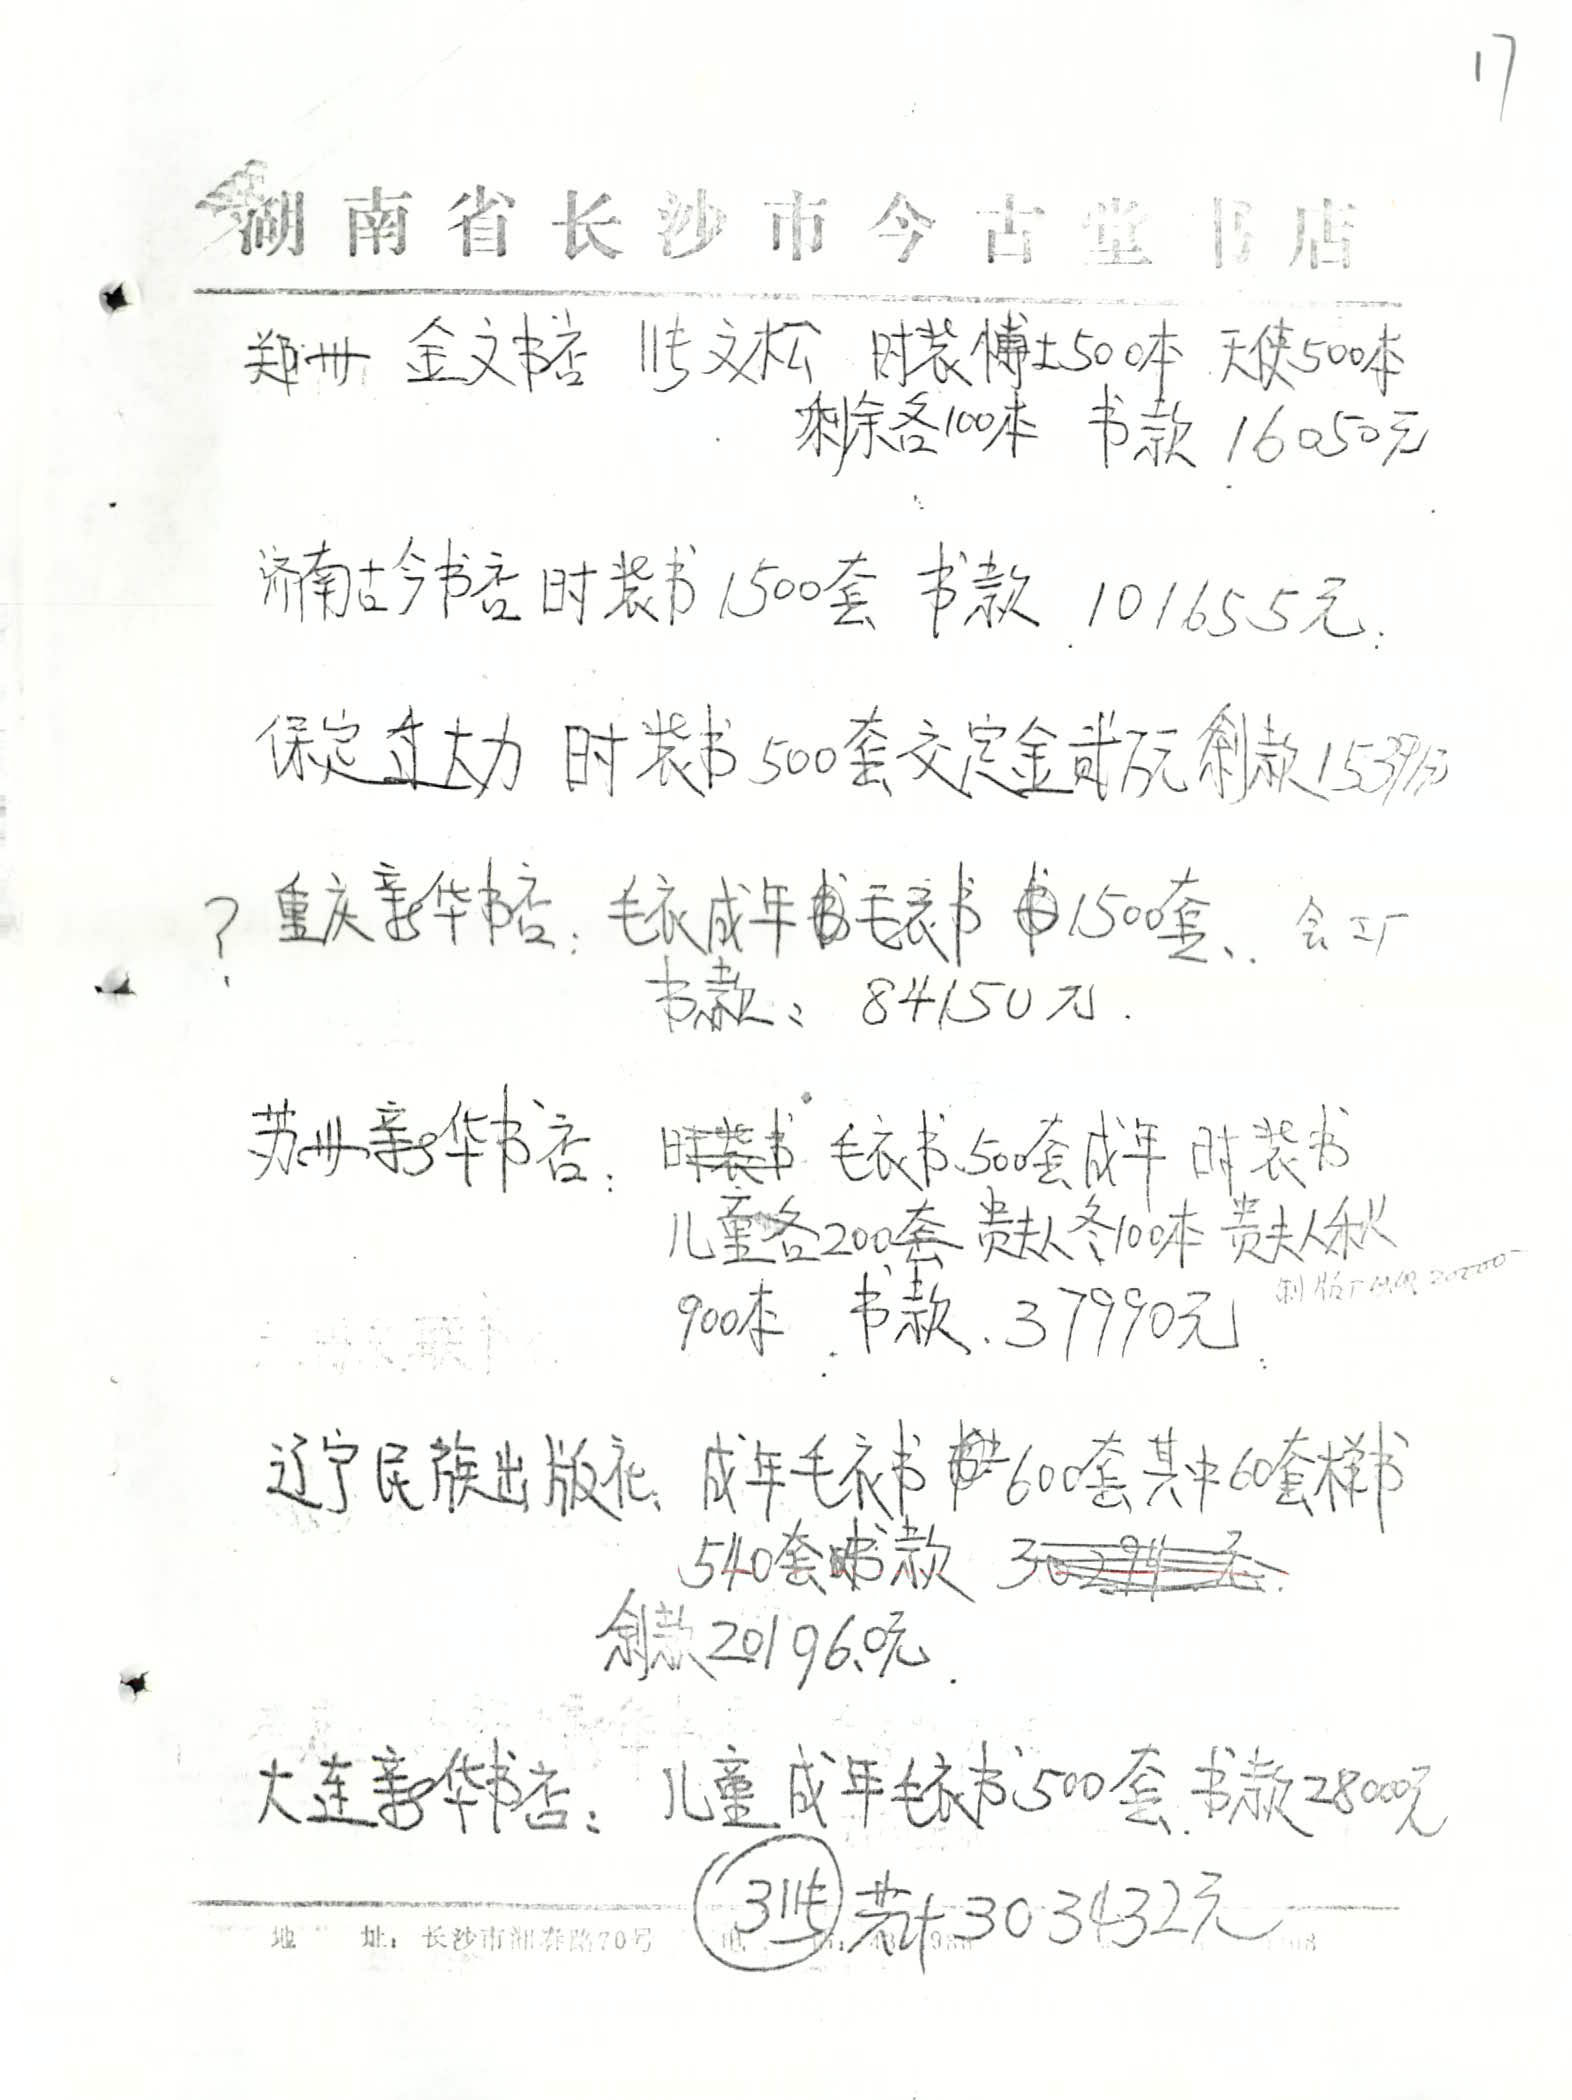 17
湖南省长沙市今古堂书店
郑州 金文书店 张文松 时装博士500本 天使500本
剩余各100本 书款 16050元
济南古今书店 时装书 1500套 书款 101655元
保定 大力 时装书500套交定金贰万元 剩款15391元
? 重庆新华书店: 毛衣成年毛衣书 1500套、会工厂
书款: 84150元.
苏州新华书店: 时装书 毛衣书500套成年 时装书
儿童各200套 贵夫人冬100本 贵夫人秋
20000
900本 书款 37990元
辽宁民族出版社、成年毛衣书 600套其中60套样书
540套书款 30294元
剩款20196.0元
大连新华书店: 儿童成年毛衣书500套 书款28000元
3张 共计303432元
地 址: 长沙市湘春路70号